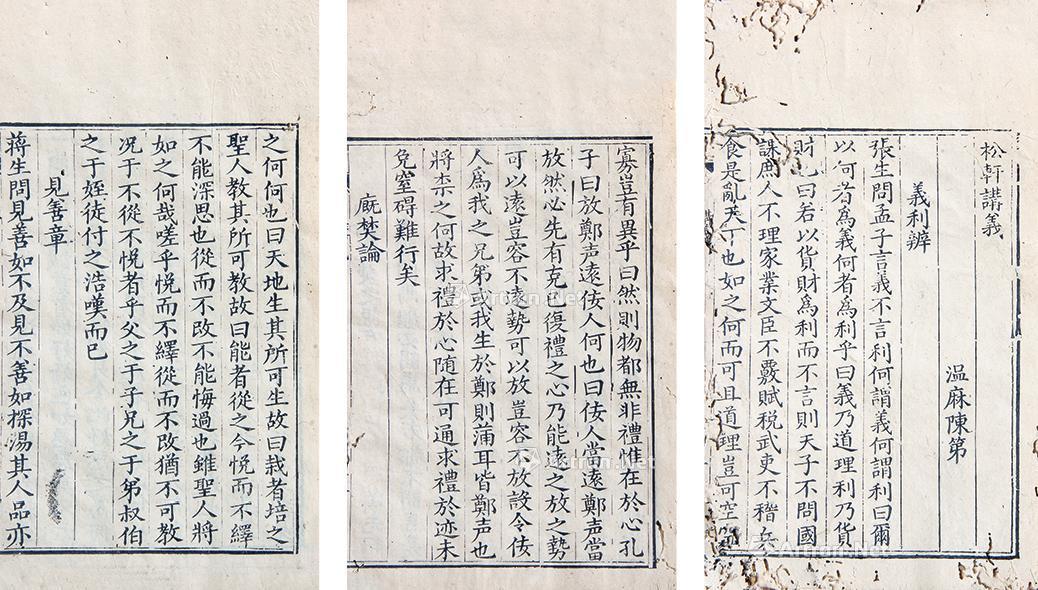 松軒講義
溫麻陳第
義利辨
張生問孟子言義不言利何謂義何謂利曰爾
以何者爲義何者爲利乎曰義乃道理利乃貨
財已曰若以貨財爲利而不言則天子不問國
課庶人不理家業文臣不覈賦稅武吏不稽兵
食是亂天下也如之何而可且道理豈可空
寡豈有異乎曰然則物都無非禮惟在於心孔
子曰放鄭声遠佞人何也曰佞人當遠鄭声當
放然心先有克己復禮之心乃能遠之放之勢
可以遠豈容不遠勢可以放豈容不放設令佞
人爲我之兄弟或我生於鄭則蒲耳皆鄭声也
將柰之何故求禮於心随在可通求禮於迹未
免窒碍難行矣
厩焚論
之何何也曰天地生其所可生故曰栽者培之
聖人教其所可教故曰能者從之今悦而不繹
不能深思也從而不改不能悔過也雖聖人將
如之何哉嗟乎悦而不繹從而不改猶不可教
况于不從不悦者乎父之于子兄之于弟叔伯
之于姪徒付之浩嘆而已
見善章
蒋生問見善如不及見不善如探湯其人品亦
Artron.Net
Artron.Net
Artron.Net